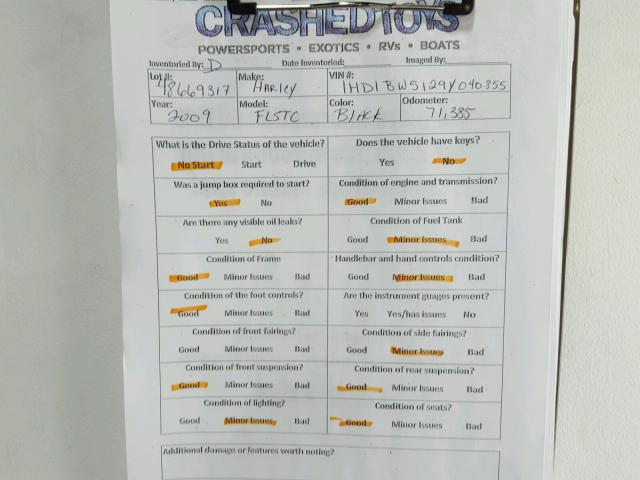 CRASHEDTOYS
POWERSPORTS • EXOTICS • RVs • BOATS
Inventoried By: D Date Inventoried: Imaged By:
Lot #: 48669317 Make: HARLEY VIN #: 1HD1BW5129Y040355
Year: 2009 Model: FLSTC Color: BLACK Odometer: 71,385
What is the Drive Status of the vehicle? Does the vehicle have keys?
No Start Start Drive Yes No
Was a jump box required to start? Condition of engine and transmission?
Yes No Good Minor Issues Bad
Are there any visible oil leaks? Condition of Fuel Tank
Yes No Good Minor Issues Bad
Condition of Frame Handlebar and hand controls condition?
Good Minor Issues Bad Good Minor Issues Bad
Condition of the foot controls? Are the instrument guages present?
Good Minor Issues Bad Yes Yes/has issues No
Condition of front fairings? Condition of side fairings?
Good Minor Issues Bad Good Minor Issues Bad
Condition of front suspension? Condition of rear suspension?
Good Minor Issues Bad Good Minor Issues Bad
Condition of lighting? Condition of seats?
Good Minor Issues Bad Good Minor Issues Bad
Additional damage or features worth noting?